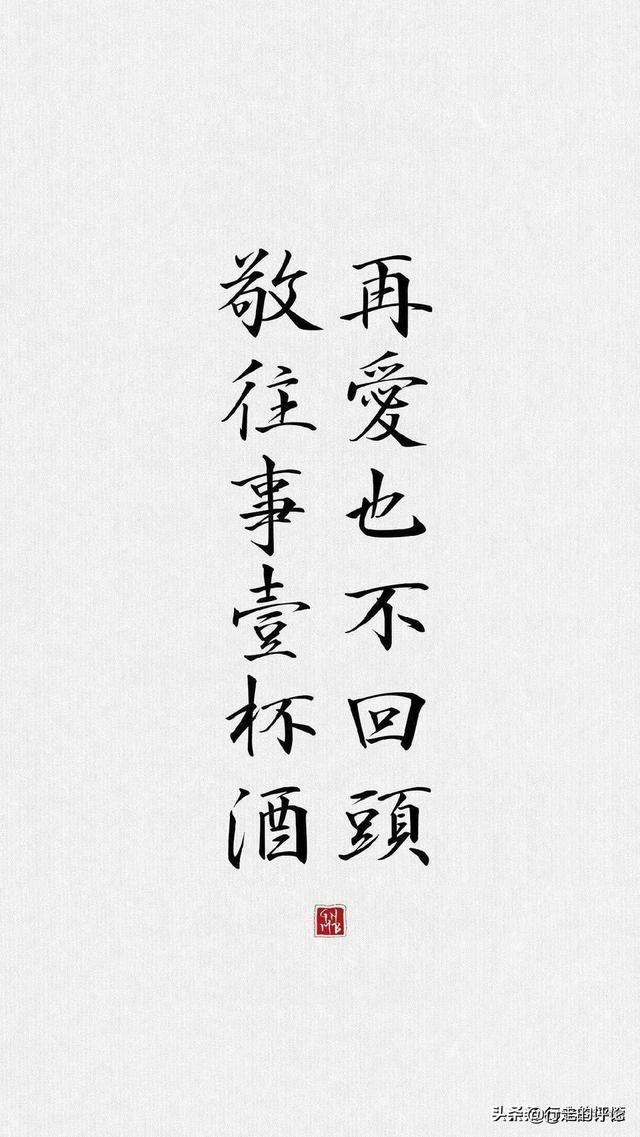 敬往事壹杯酒
再愛也不回頭
头条@行走的评论